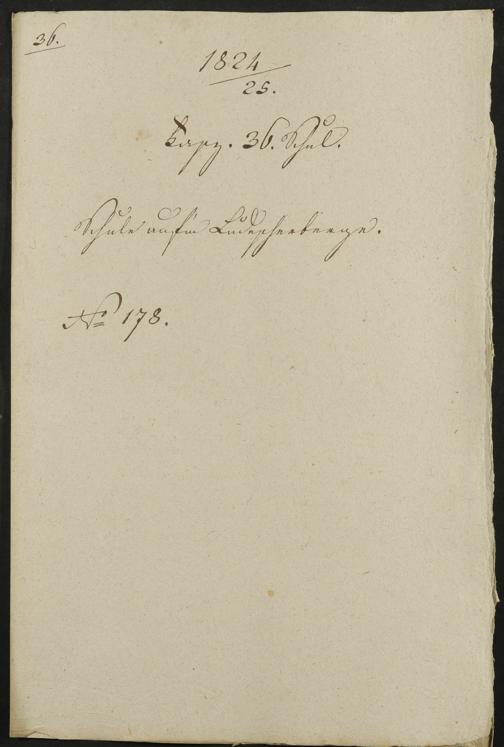 36.
1824
25.
36. Schul.
Schule auf'm
No 178.